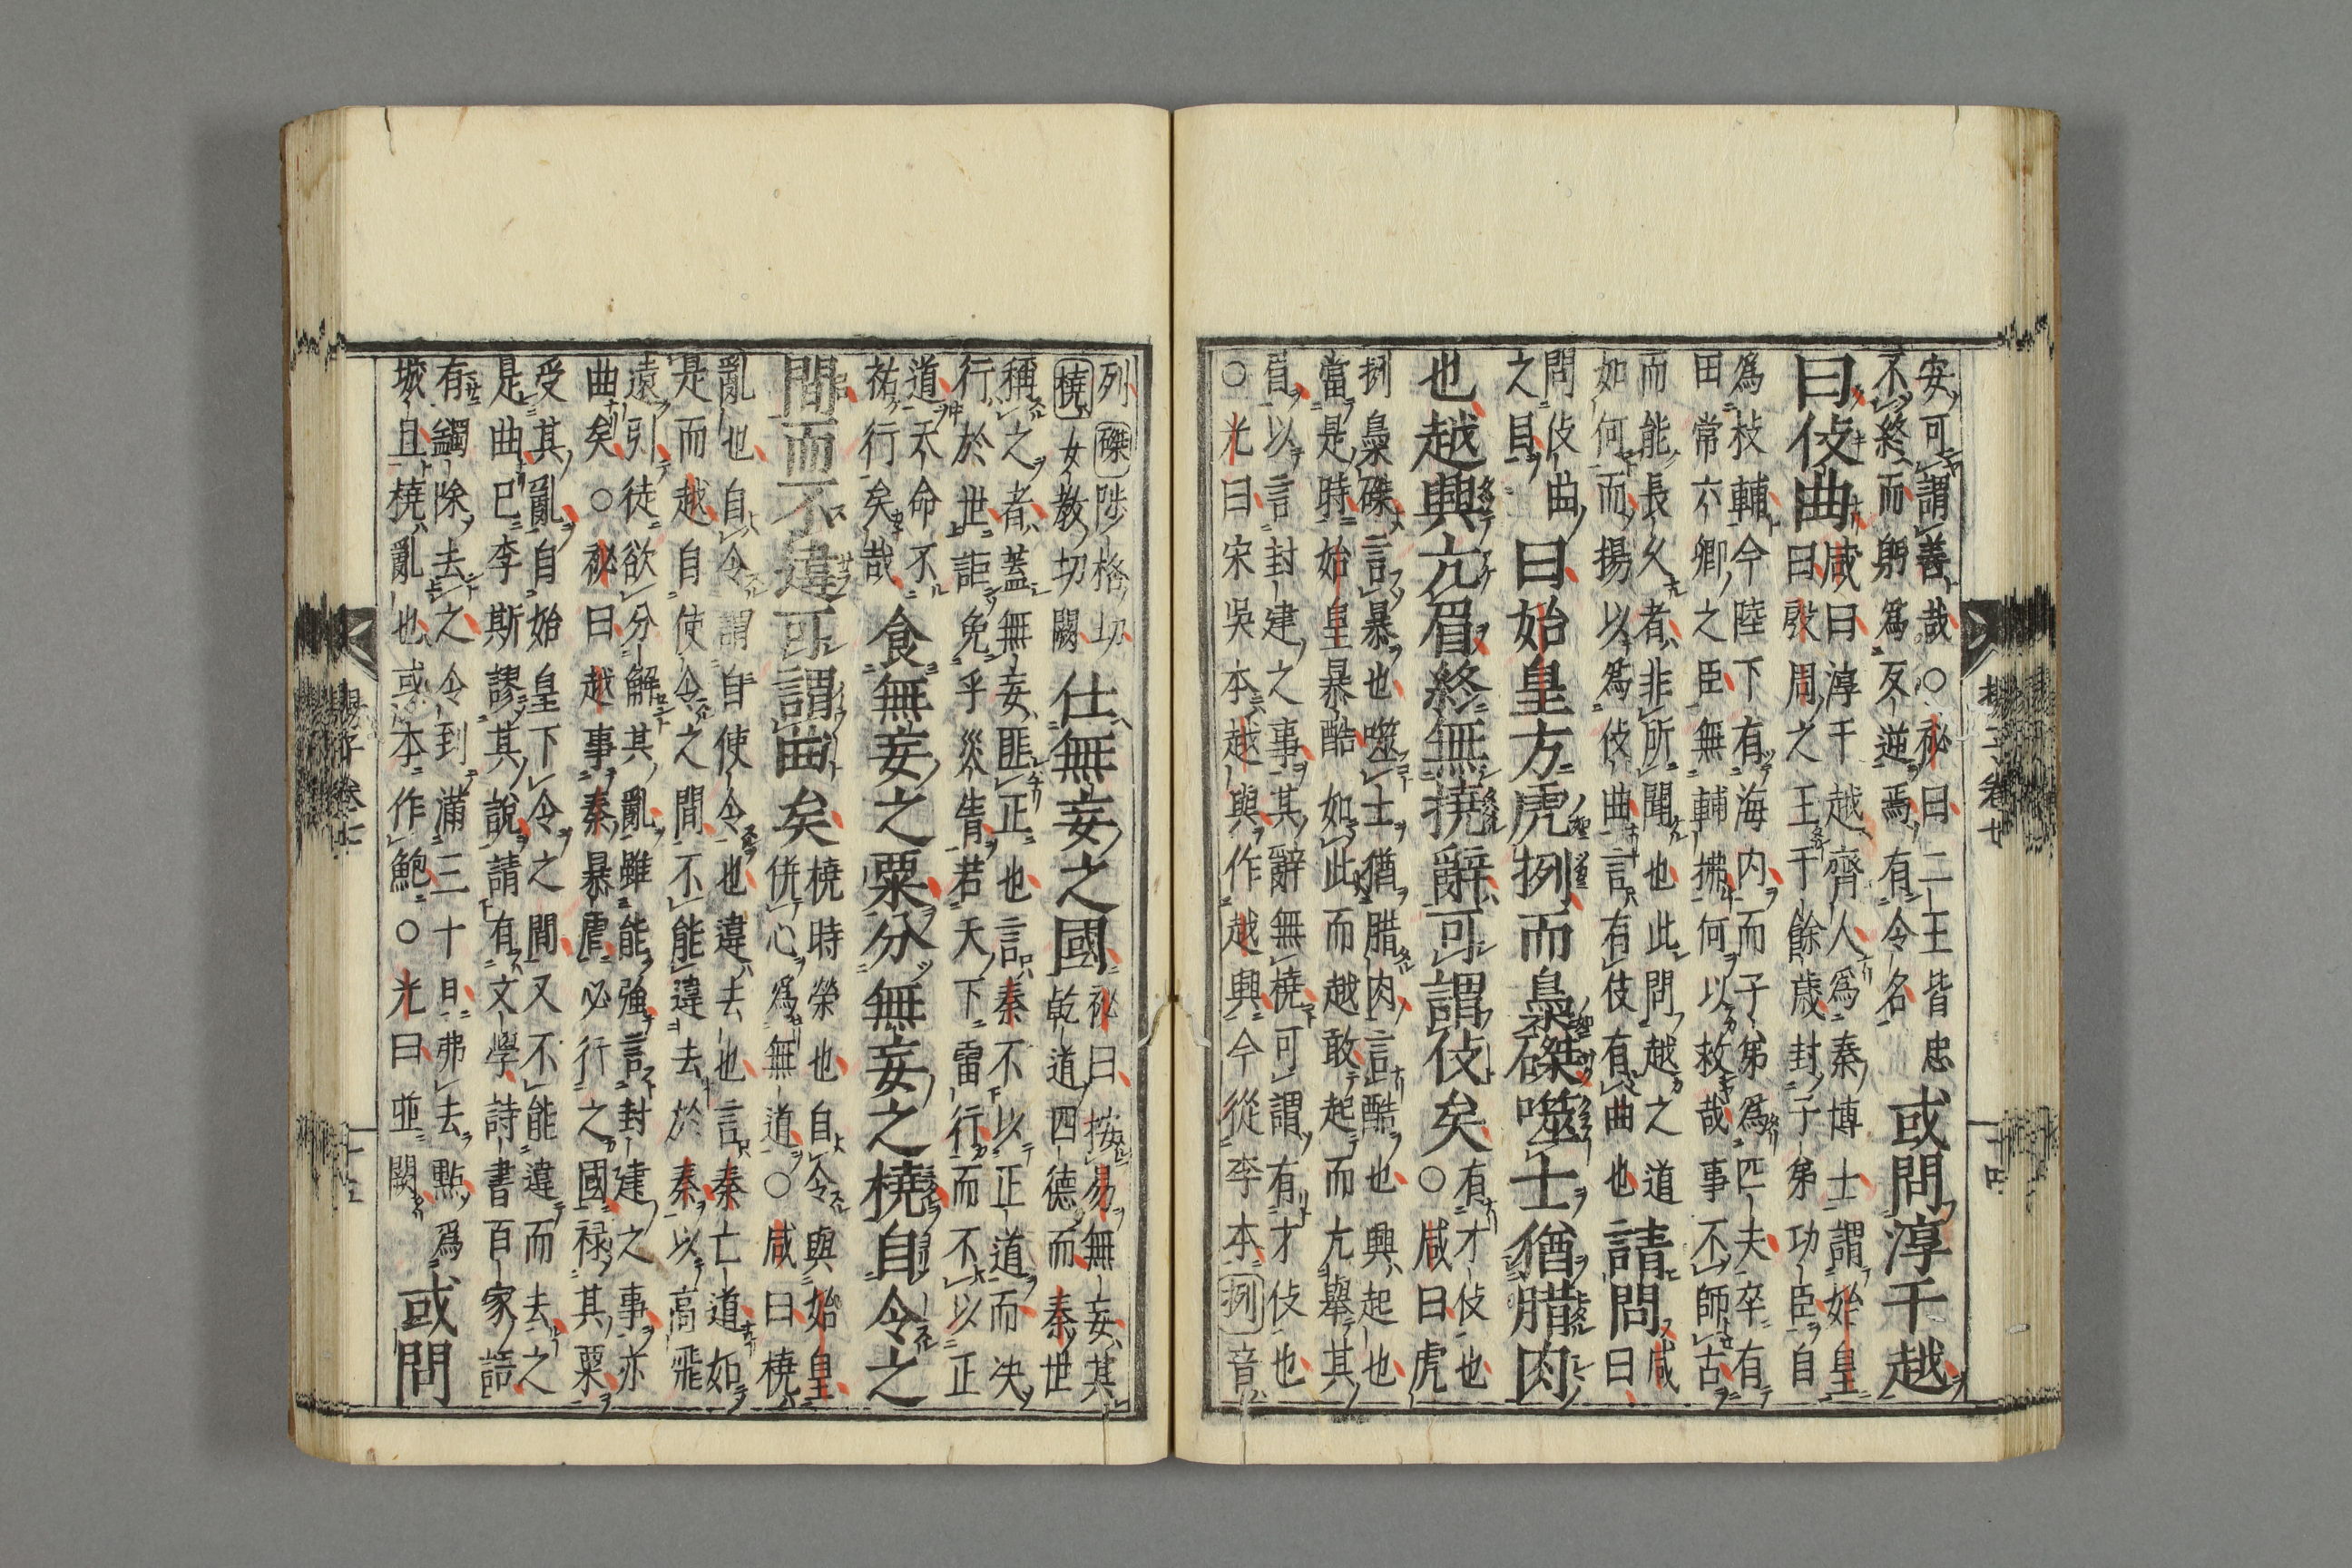 安可謂善哉○祕曰二王皆忠
不終而躬爲反逆焉有令名
或問淳于越
曰伎曲
咸曰淳于越齊人爲秦博士謂始皇
曰殷周之王千餘歲封子弟功臣自
爲枝輔今陸下有海内而子弟爲匹夫卒有
田常六卿之臣無輔拂何以救哉事不師古
而能長久者非所聞也此問越之道咸
如何而揚以爲伎曲言有伎有曲也
請問曰
問伎曲
之目
曰始皇方虎挒而梟磔噬士猶腊肉
也越興亢眉終無撓辭可謂伎矣
有才伎也
○咸曰虎
挒梟磔言暴也噬士猶腊肉言酷也興起也
當是時始皇暴酷如此而越敢起而亢舉其
眉以言封建之事其辭無橈可謂有才伎也
○光曰宋吳本越與作越興今從李本挒音
列磔陟格切
橈女教切闕
仕無妄之國
祕曰按易無妄其
乾道四德而秦世
稱之者蓋無妄匪正也言秦不以正道而决
行於世詎免乎災眚若天下雷行而不以正
道天命不
祐行矣哉
食無妄之粟分無妄之橈自令之
間而不違可謂曲矣
橈時榮也自令與始皇
併心爲無道○咸曰橈
亂也自令謂自使令也違去也言秦亡道如
是而越自使令之間不能違去於秦以高飛
遠引徒欲分解其亂雖能強言封建之事亦
曲矣○祕曰越事秦暴虐必行之國禄其粟
受其亂自始皇下令之間又不能違而去之
是曲已李斯謬其說請有文學詩書百家語
有蠲除去之令到滿三十日弗去黥爲
城旦橈亂也或本作鮑○光曰並闕
或問